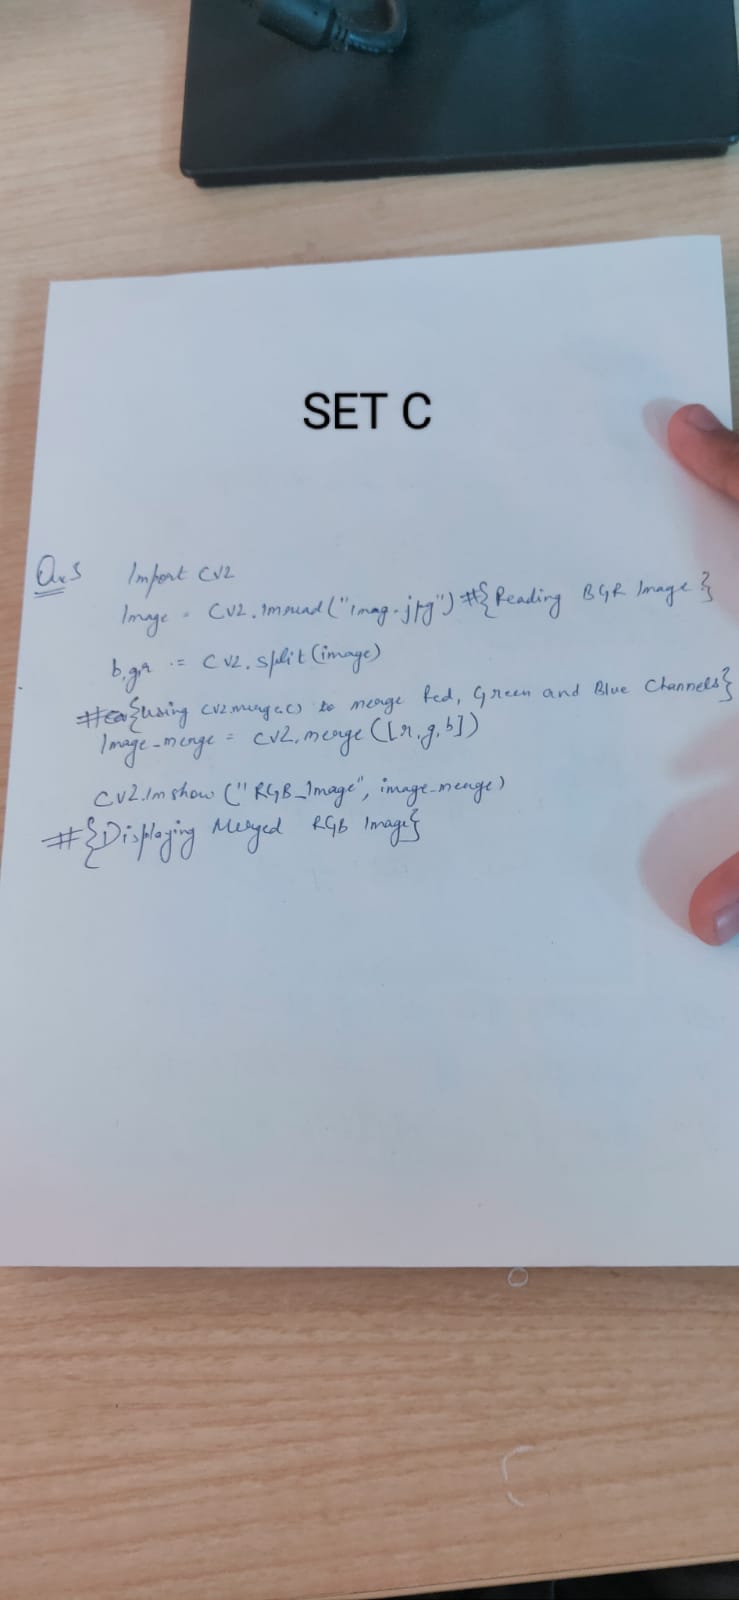 SET C
Ans Import CV2
Image = CV2.Imread("imag.jpg") #{Reading BGR Image}
b,g,r = CV2.split(image)
#{using CV2.merge() to merge Red, Green and Blue Channels}
Image_merge = CV2.merge([r,g,b])
CV2.Imshow ("RGB_Image", image_merge)
#{Displaying Merged RGB Image}